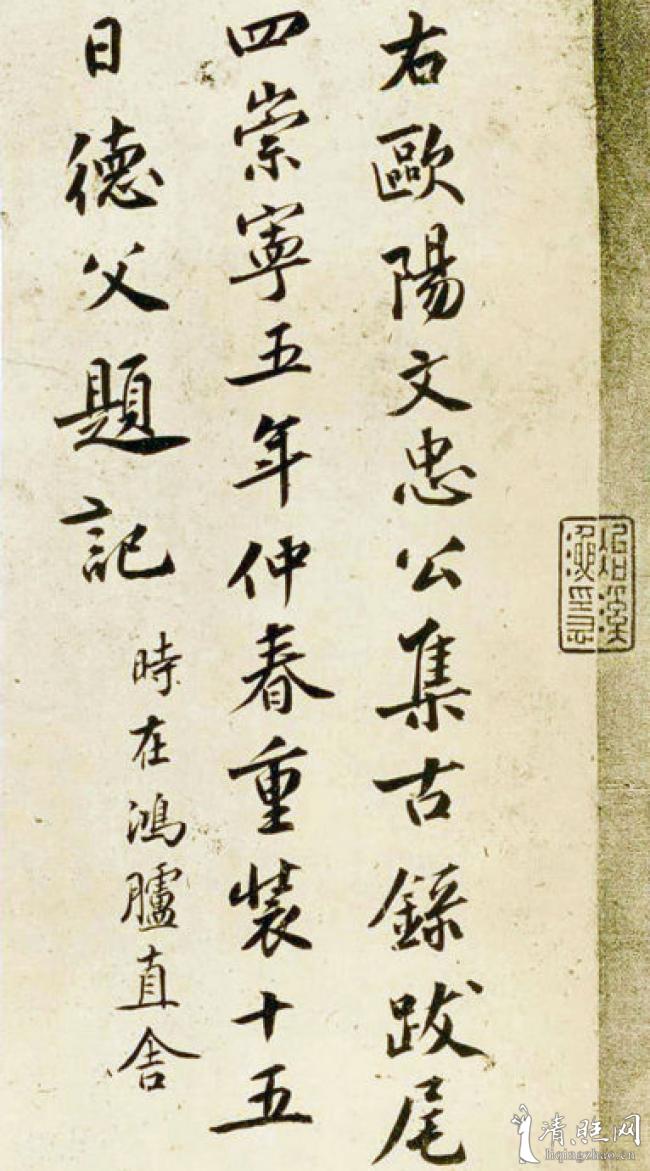 右歐陽文忠公集古錄跋尾
四崇寧五年仲春重裝十五
日德父題記
時在鴻臚直舍
清照网
liqingzhao.cn